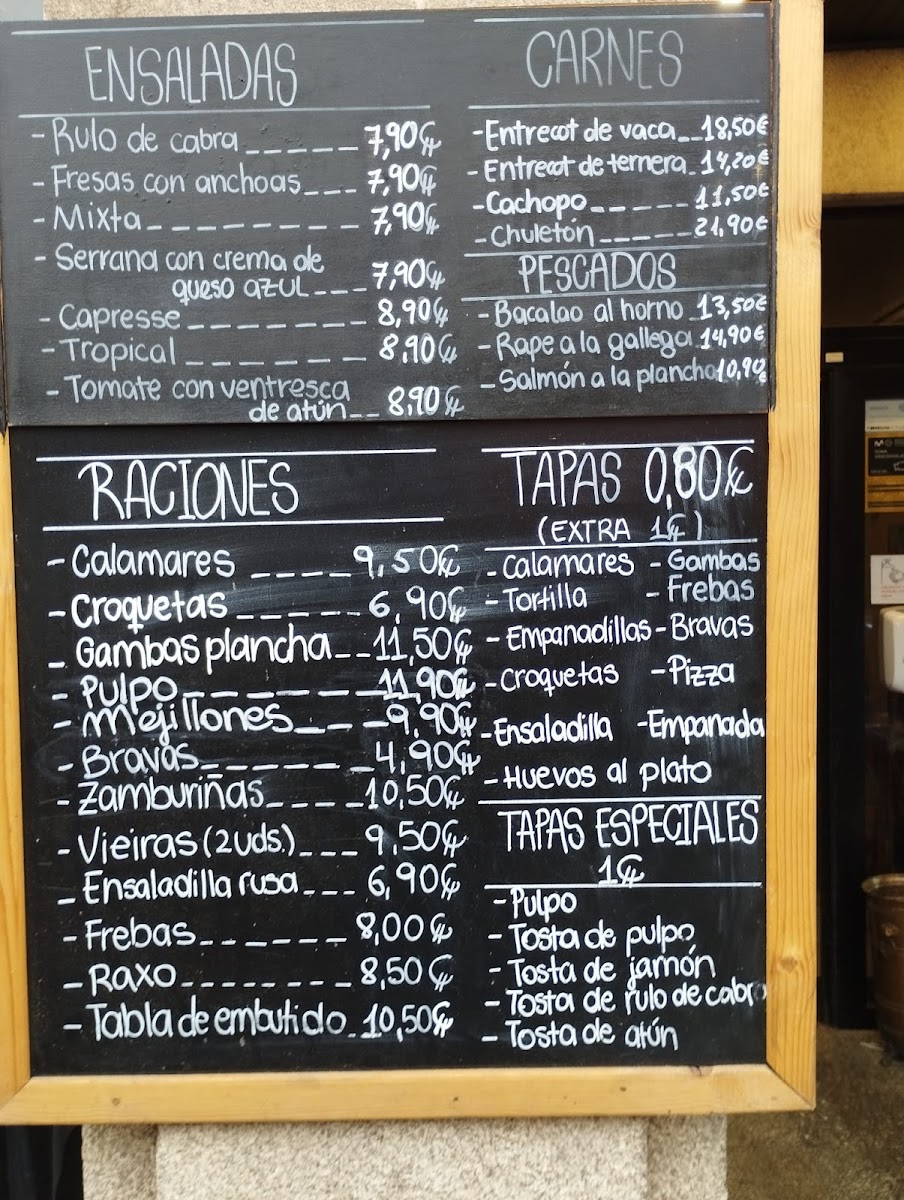 ENSALADAS
- Rulo de cabra _ _ _ _ _ 7,90€
- Fresas con anchoas _ _ _ 7,90€
- Mixta _ _ _ _ _ _ _ _ _ 7,90€
- Serrana con crema de
queso azul _ _ _ 7,90€
- Capresse _ _ _ _ _ _ _ 8,90€
- Tropical _ _ _ _ _ _ _ 8,90€
- Tomate con ventresca
de atún _ _ 8,90€
CARNES
- Entrecot de vaca _ _ 18,50€
- Entrecot de ternera _ 14,20€
- Cachopo _ _ _ _ _ 11,50€
- Chuletón _ _ _ _ _ 21,90€
PESCADOS
- Bacalao al horno _ 13,50€
- Rape a la gallega _ 14,90€
- Salmón a la plancha 10,90€
RACIONES
- Calamares _ _ _ _ 9,50€
- Croquetas _ _ _ _ _ 6,90€
- Gambas plancha _ _ 11,50€
- Pulpo _ _ _ _ _ _ _ 11,90€
- Mejillones _ _ _ _ 9,90€
- Bravas _ _ _ _ _ _ 4,90€
- Zamburiñas _ _ _ _ 10,50€
- Vieiras (2uds.) _ _ _ 9,50€
- Ensaladilla rusa _ _ _ 6,90€
- Frebas _ _ _ _ _ _ 8,00€
- Raxo _ _ _ _ _ _ _ _ 8,50€
- Tabla de embutido _ 10,50€
TAPAS 0,80€
(EXTRA 1€)
- Calamares - Gambas
- Tortilla - Frebas
- Empanadillas - Bravas
- Croquetas - Pizza
- Ensaladilla - Empanada
- Huevos al plato
TAPAS ESPECIALES
1€
- Pulpo
- Tosta de pulpo
- Tosta de jamón
- Tosta de rulo de cabra
- Tosta de atún